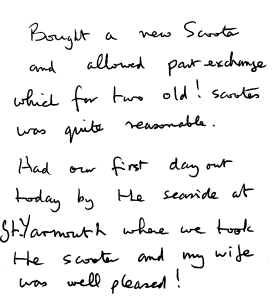 Bought a new Scooter
and allowed part exchange
which for two old! scooters
was quite reasonable.
Had our first day out
today by the seaside at
Gt.Yarmouth where we took
the scooter and my wife
was well pleased!